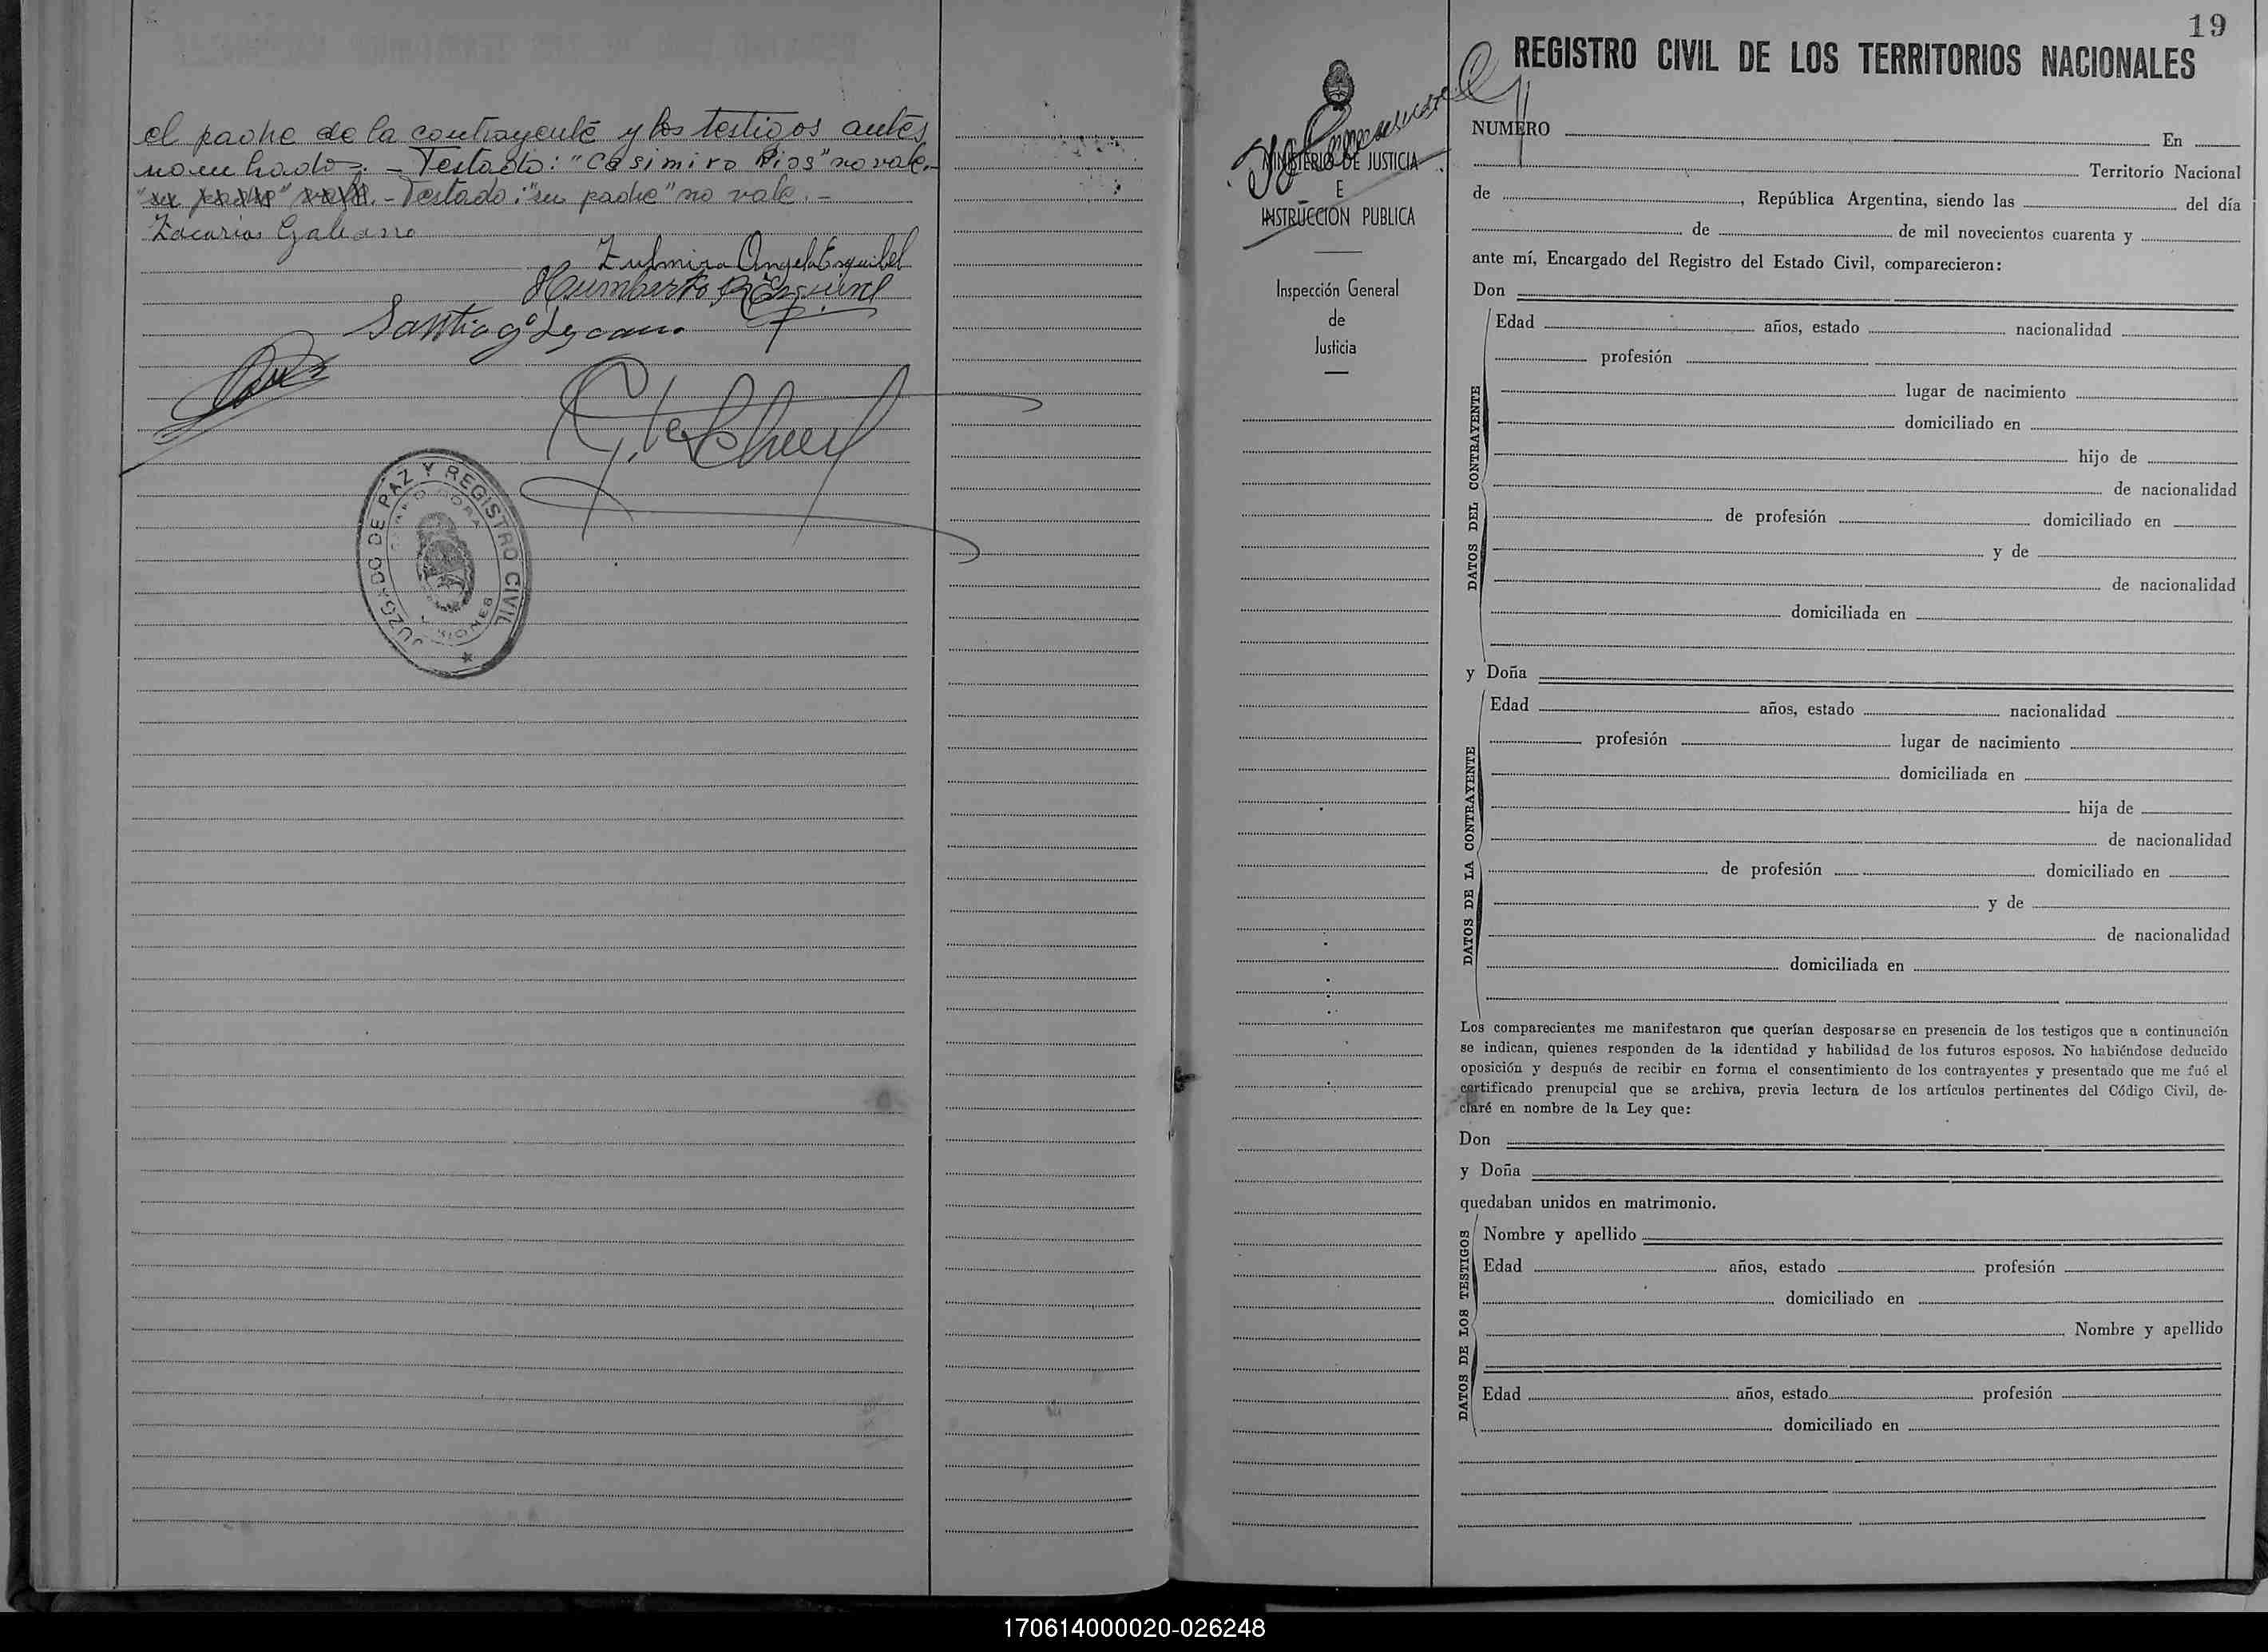 el padre de la contrayente y los testigos antes
nombrados. - Testado: "Casimiro Rios" no vale. -
Testado: "su padre" no vale. -
Zacarias Galeano
Zulmira Angela Esquibel
Humberto R Esquivel
Santiago Lezcano
JUZGADO DE PAZ Y REGISTRO CIVIL
MISIONES
19
REGISTRO CIVIL DE LOS TERRITORIOS NACIONALES
MINISTERIO DE JUSTICIA
E
INSTRUCCION PUBLICA
Inspección General
de
Justicia
NUMERO En
Territorio Nacional
de , República Argentina, siendo las del día
de de mil novecientos cuarenta y
ante mí, Encargado del Registro del Estado Civil, comparecieron:
Don
DATOS DEL CONTRAYENTE
Edad años, estado nacionalidad
profesión
lugar de nacimiento
domiciliado en
hijo de
de nacionalidad
de profesión domiciliado en
y de
de nacionalidad
domiciliada en
y Doña
DATOS DE LA CONTRAYENTE
Edad años, estado nacionalidad
profesión lugar de nacimiento
domiciliada en
hija de
de nacionalidad
de profesión domiciliado en
y de
de nacionalidad
domiciliada en
Los comparecientes me manifestaron que querían desposarse en presencia de los testigos que a continuación
se indican, quienes responden de la identidad y habilidad de los futuros esposos. No habiéndose deducido
oposición y después de recibir en forma el consentimiento de los contrayentes y presentado que me fué el
certificado prenupcial que se archiva, previa lectura de los artículos pertinentes del Código Civil, de-
claré en nombre de la Ley que:
Don
y Doña
quedaban unidos en matrimonio.
DATOS DE LOS TESTIGOS
Nombre y apellido
Edad años, estado profesión
domiciliado en
Nombre y apellido
Edad años, estado profesión
domiciliado en
170614000020-026248